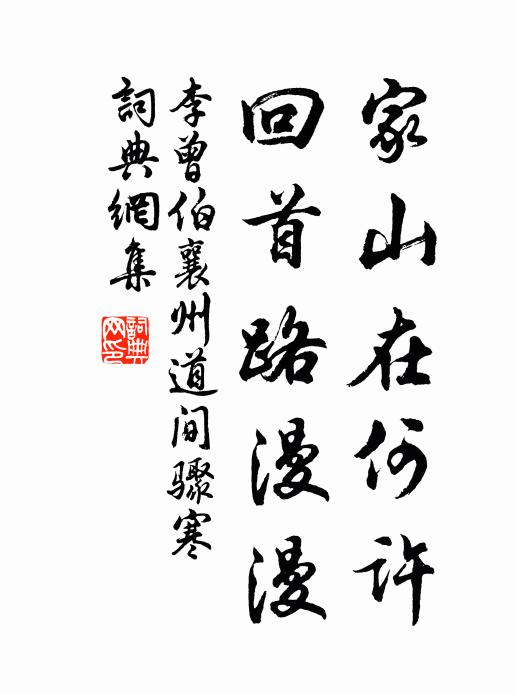 家山在何许
回首路漫漫
李曾伯襄州道间骤寒
词典網集
詞典网印